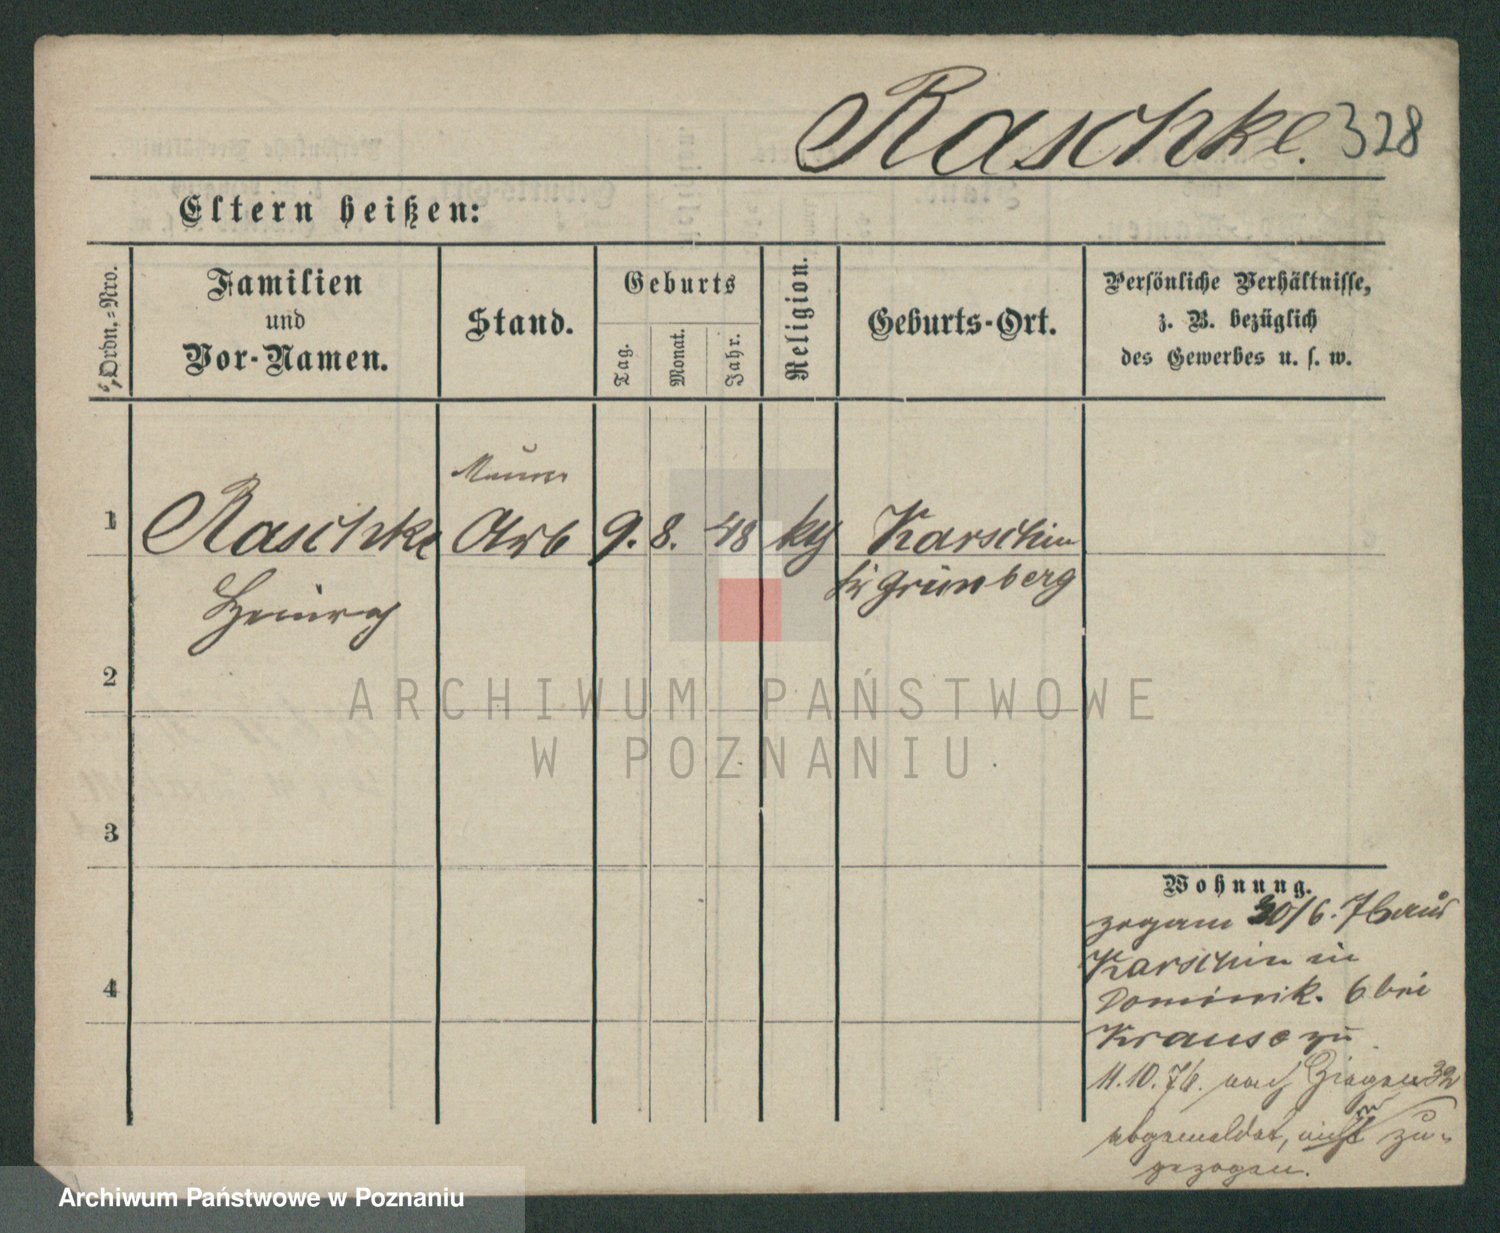 Raschke. 328
Eltern heißen:
Ordn.-Nro.
Familien
und
Vor-Namen.
Stand.
Geburts
Tag.
Monat.
Jahr.
Religion.
Geburts-Ort.
Persönliche Verhältnisse,
z. B. bezüglich
des Gewerbes u. s. w.
Maurer
1 Raschke Arb 9. 8. 48 kth Karschin
Heinrich
Grünberg
2
ARCHIWUM PAŃSTWOWE
W POZNANIU
3
4
Wohnung.
30/6. 76 aus
Karschin in
Dominik. 6 bei
Krause zu
11.10.76. nach Ziegen 32
abgemeldet, nicht zu-
gezogen.
Archiwum Państwowe w Poznaniu